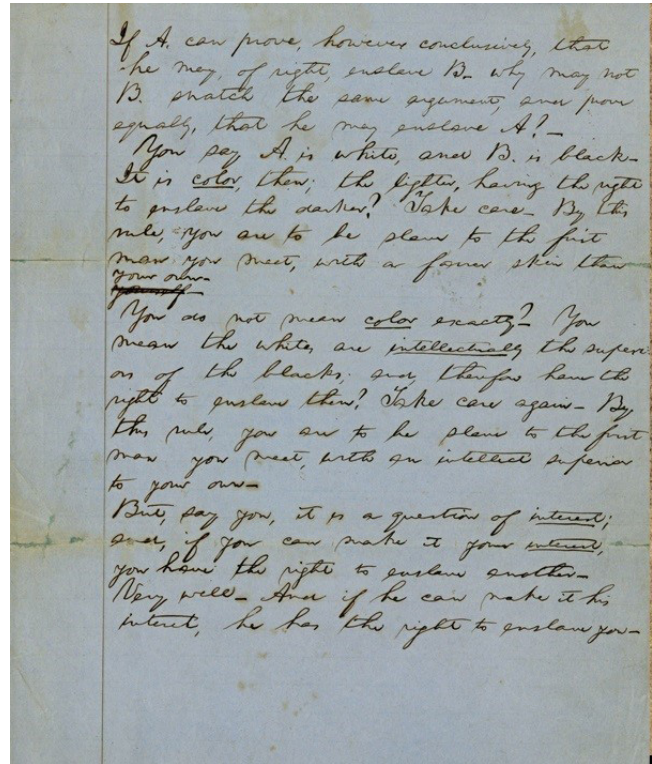 If A. can prove, however conclusively, that
he may, of right, enslave B. — why may not
B. snatch the same argument, and prove
equally, that he may enslave A? —
You say A. is white, and B. is black —
It is color, then; the lighter, having the right
to enslave the darker? Take care — By this
rule, you are to be slave to the first
man you meet, with a fairer skin than
your own —
yourself
You do not mean color exactly? — You
mean the whites are intellectually the superi-
ors of the blacks; and, therefore have the
right to enslave them? Take care again — By
this rule, you are to be slave to the first
man you meet, with an intellect superior
to your own —
But, say you, it is a question of interest;
and, if you can make it your interest,
you have the right to enslave another —
Very well — And if he can make it his
interest, he has the right to enslave you —